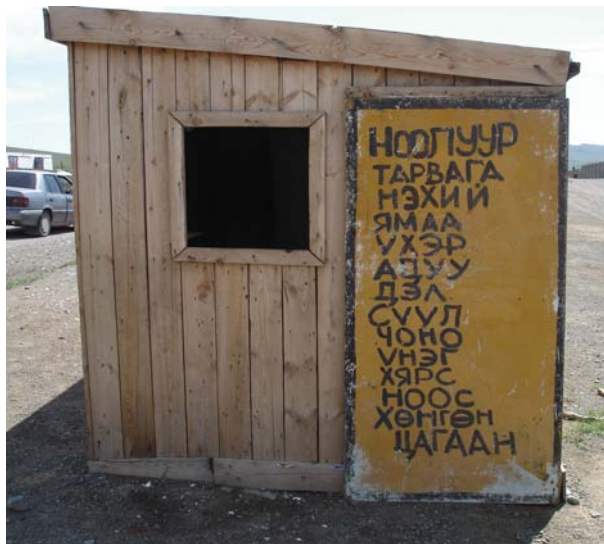 НООЛУУР
ТАРВАГА
НЭХИЙ
ЯМАА
ҮХЭР
АДУУ
ДЭЛ
СҮҮЛ
ЧОНО
ҮНЭГ
ХЯРС
НООС
ХӨНГӨН
ЦАГААН